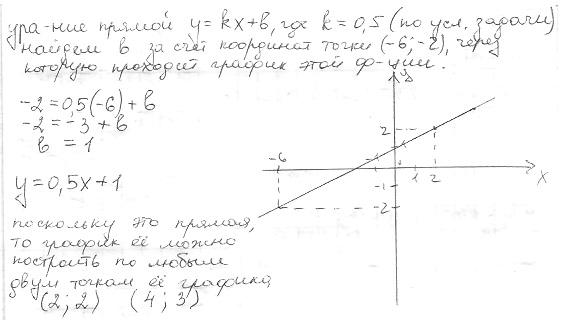 ура-ние прямой y = kx + b, где k = 0,5 (по усл. задачи)
найдем b за счет координат точки (-6; -2), через
которую проходит график этой ф-ции.
-2 = 0,5(-6) + b
-2 = -3 + b
b = 1
y = 0,5x + 1
поскольку это прямая,
то график её можно
построить по любым
двум точкам её графика
(2; 2) (4; 3)
y
2
-6
1
2
x
-1
-2